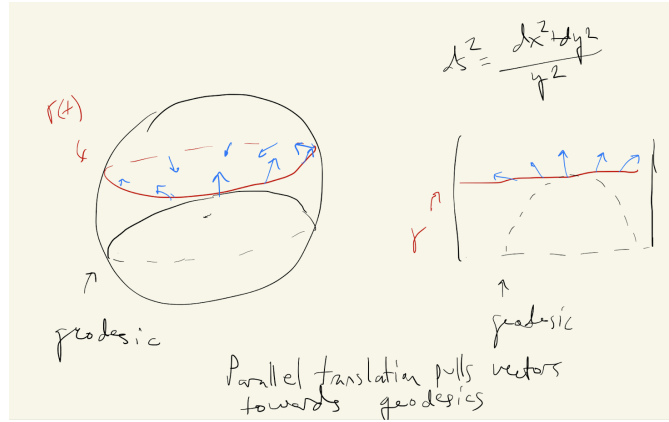 ds² = dx²+dy² / y²
γ(t)
γ
geodesic
geodesic
Parallel translation pulls vectors
towards geodesics